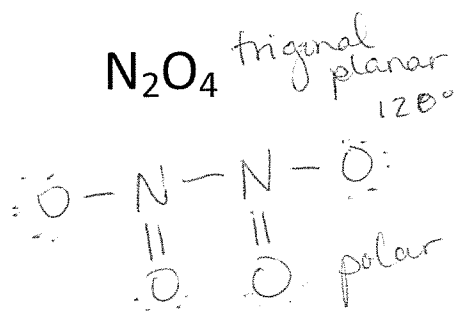 N₂O₄ trigonal
planar
120°
O – N – N – O
|| ||
O O
polar